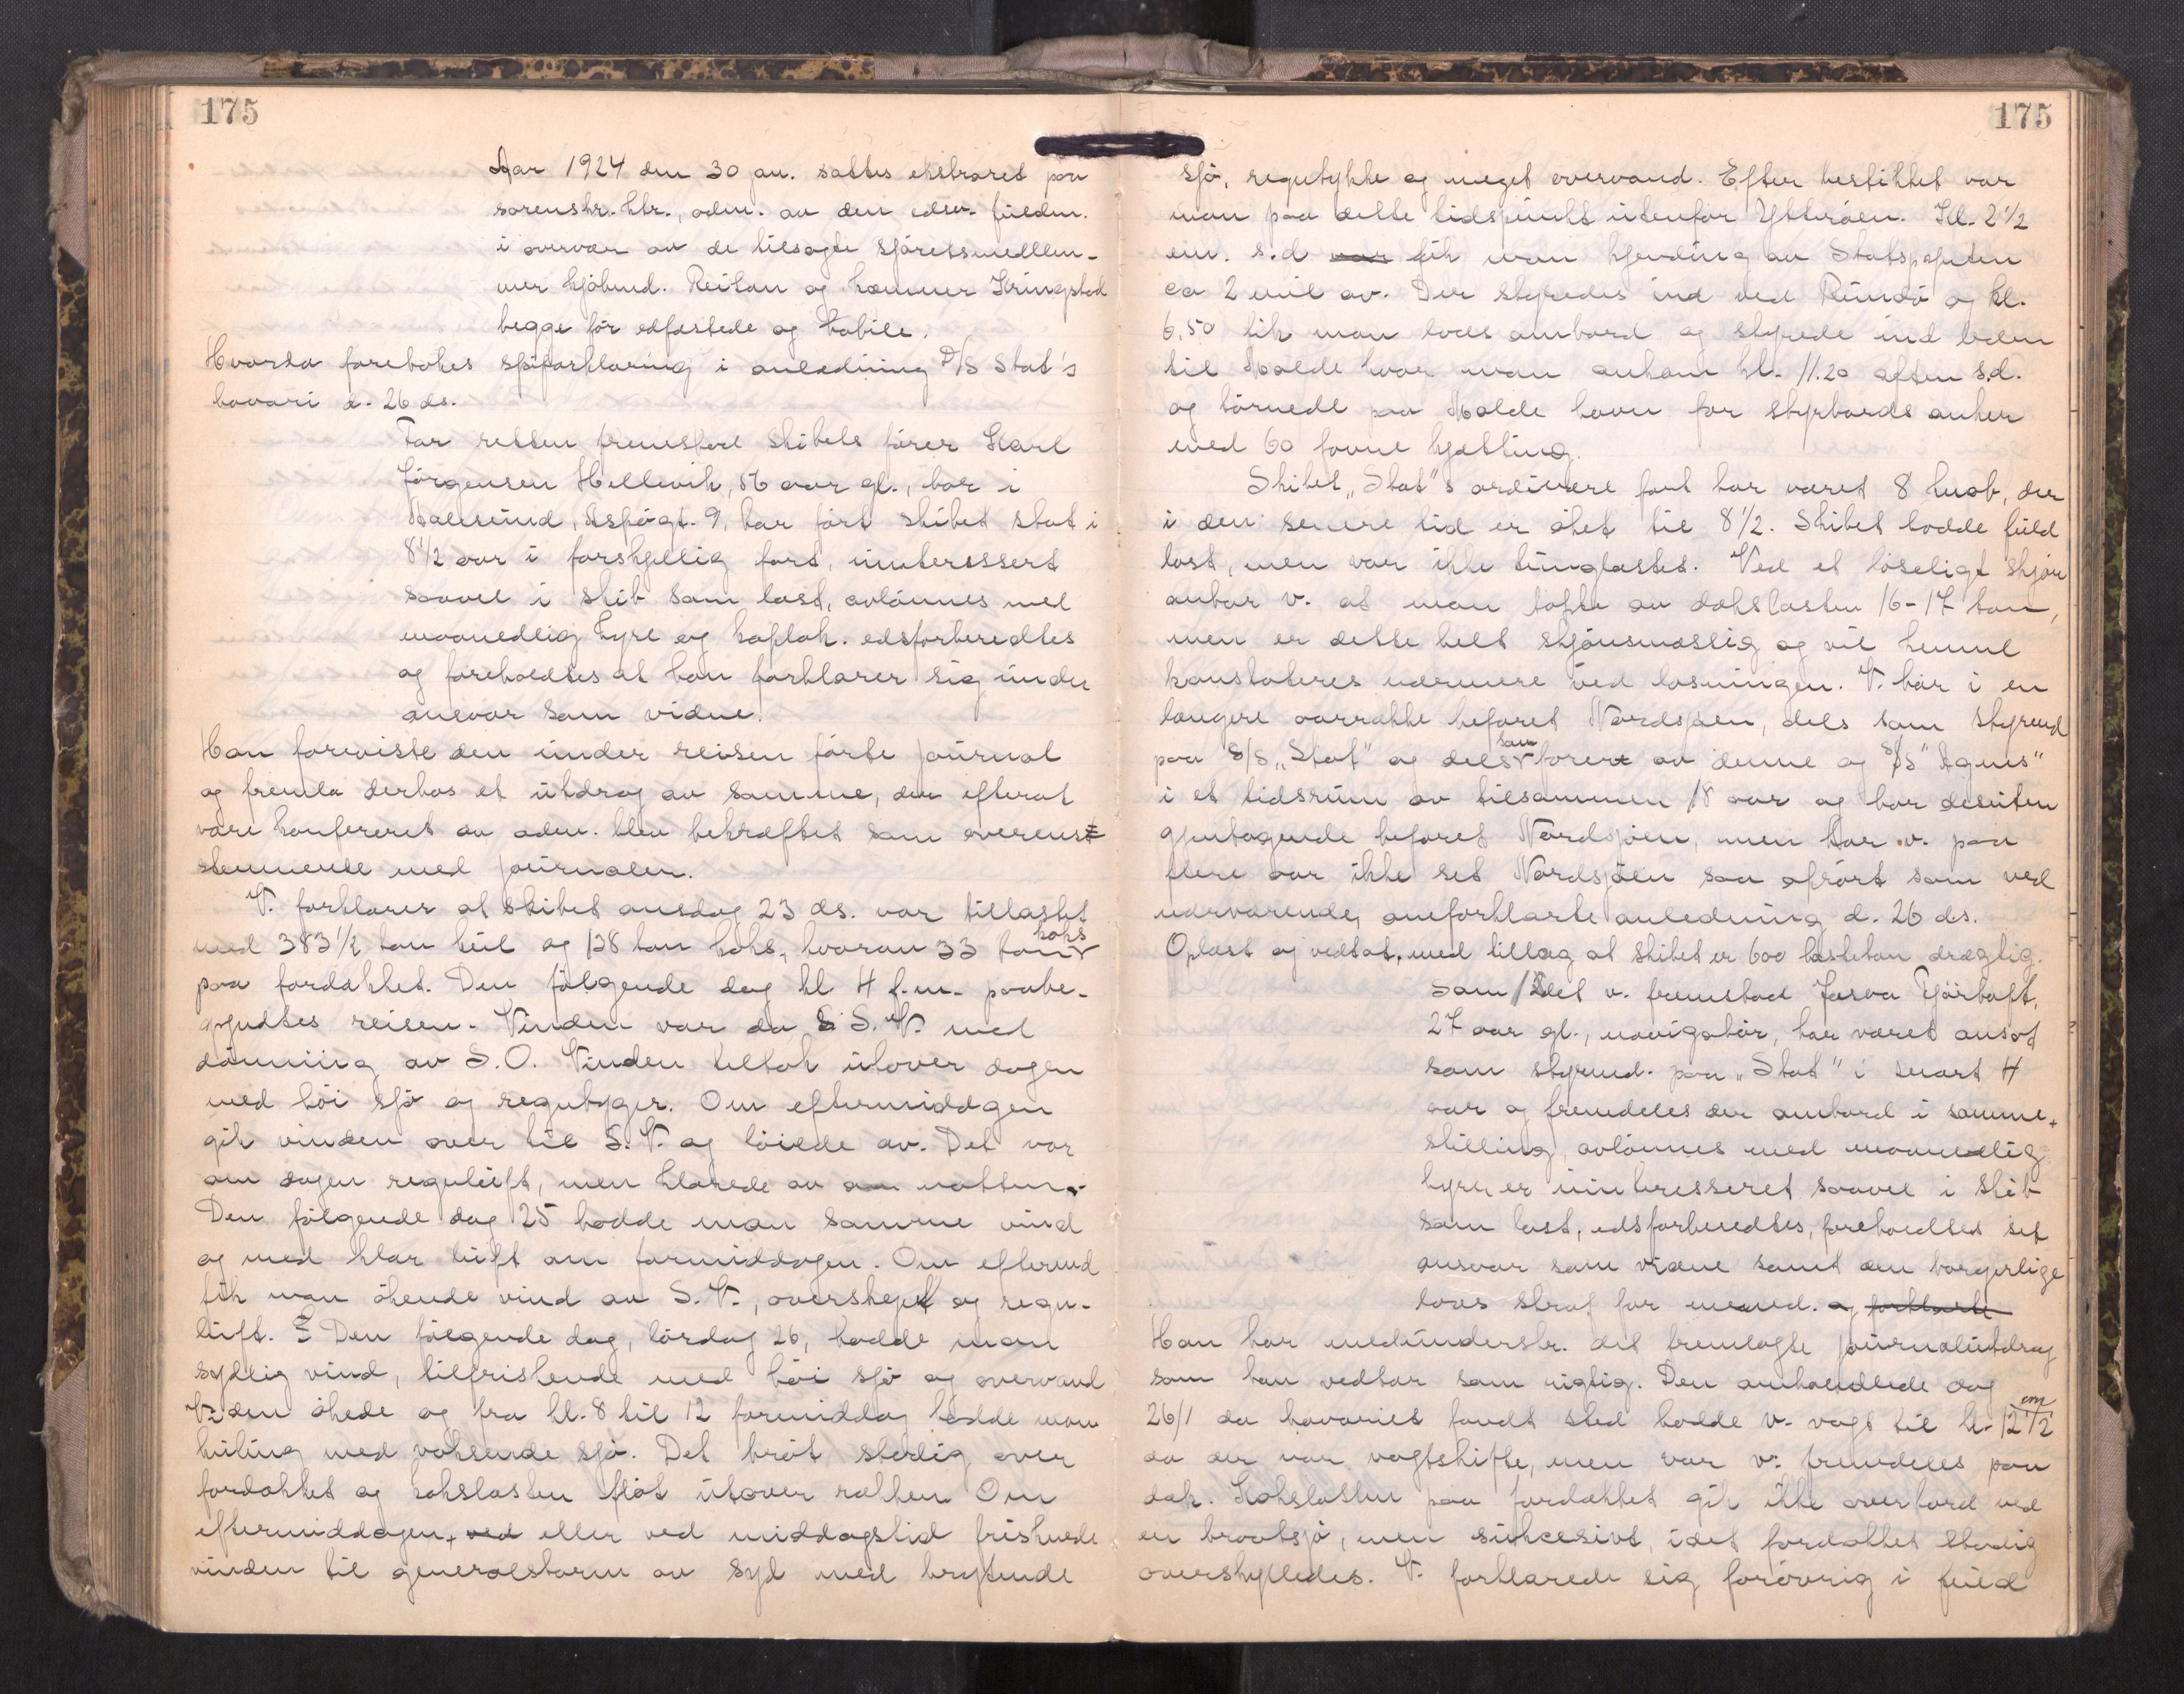 175
Aar 1924 den 30 jan. sattes ekstraret paa
sorenskr. ktr., adm. av den edsv. fuldm.
i overvær av de tilsagte sjøretsmedlem-
mer kjøbmd. Reitan og Kringstad
begge før edfæstede og habile.
Hvorda foretokes sjøforklaring i anledning D/S Stat's
havari d. 26 ds.
For retten fremstod skibets fører Karl
Jørgensen Hellevik, 56 aar gl., bor i
Aalesund, Aspøgt. 9, har ført skibet Stat i
8½ aar i forskjellig fart, uinteressert
saavel i skib som last, avlønnes med
maanedlig hyre og kaplak. edsforberedtes
og foreholdtes at han forklarer sig under
ansvar som vidne.
Han foreviste den under reisen førte journal
og fremla derhos et utdrag av samme, der efterat
være konfereret av adm. blev bekræftet som overens=
stemmende med journalen.
V. forklarer at skibet onsdag 23 ds. var tillastet
med 383½ ton kul og 128 ton koks, hvorav 33 ton koks
paa fordækket. Den følgende dag kl 4 f.m. paabe-
gyndtes reisen. Vinden var da S.V. med
dønning av S.O. Vinden tiltok utover dagen
med høi sjø og regnbyger. Om eftermiddagen
gik vinden over til S.V. og løiede av. Det var
om dagen regnluft, men klarede av om natten.
Den følgende dag 25 hadde man samme vind
og med klar luft om formiddagen. Om eftermd
fik man økende vind av S.V., overskyet og regn-
luft. Den følgende dag, lørdag 26, hadde man
sydlig vind, tilfriskende med høi sjø og overvand
Vinden økede og fra kl. 8 til 12 formiddag hadde man
kuling med voksende sjø. Det brøt stadig over
fordækket og kokslasten fløt utover rækken. Om
eftermiddagen, ved eller ved middagstid frisknede
vinden til generalstorm av syd med brytende
175
sjø, regntykke og meget overvand. Efter bestikket var
man paa dette tidspunkt utenfor Ytterøen. Kl. 2½
em. s.d var fik man kjending av
ca 2 mil av. Der styredes ind ved Rundø og kl.
6.50 fik man lods ombord og styrede ind leden
til Molde hvor man ankom kl. 11.20 aften s.d.
og tørnede paa Molde havn for styrbords anker
med 60 favne kjætting.
Skibet „Stat"s ordinære fart har været 8 knob, der
i den senere tid er øket til 8½. Skibet hadde fuld
last, men var ikke tunglastet. Ved et løseligt skjøn
anfør v. at man tapte av dækslasten 16-17 ton,
men er dette helt skjønsmæssig og vil kunne
konstateres nærmere ved losningen. V. har i en
længere aarrække befaret Nordsjøen, dels som styrmd
paa S/S „Stat" og dels som fører av denne og S/S "Agnes"
i et tidsrum av tilsammen 18 aar og har desuten
gjentagende befaret Nordsjøen, men har v. paa
flere aar ikke set Nordsjøen saa oprørt som ved
nærværende, omforklarte anledning d. 26 ds.
Oplæst og vedtat, med tillæg at skibet er 600 lasteton drægtig.
Som 2det v. fremstod
27 aar gl., navigatør, har været ansat
som styrmd. paa „Stat" i snart 4
aar og fremdeles der ombord i samme
stilling, avlønnes med maanedlig
hyre, er uinteresseret saavel i skib
som last, edsforberedtes, foreholdtes sit
ansvar som vidne samt den borgerlige
lovs straf for mened. og forklarte
Han har medunderskr. det fremlagte journalutdrag
som han vedtar som rigtig. Den omhandlede dag
26/1 da havariet fandt sted hadde v. vagt til kl. 12½ em
da der var vagtskifte, men var v. fremdeles paa
dæk. Kokslasten paa fordækket gik ikke overbord ved
en braatsjø, men sukcesivt, idet fordækket stadig
overskylledes. V. forklarede sig forøvrig i fuld